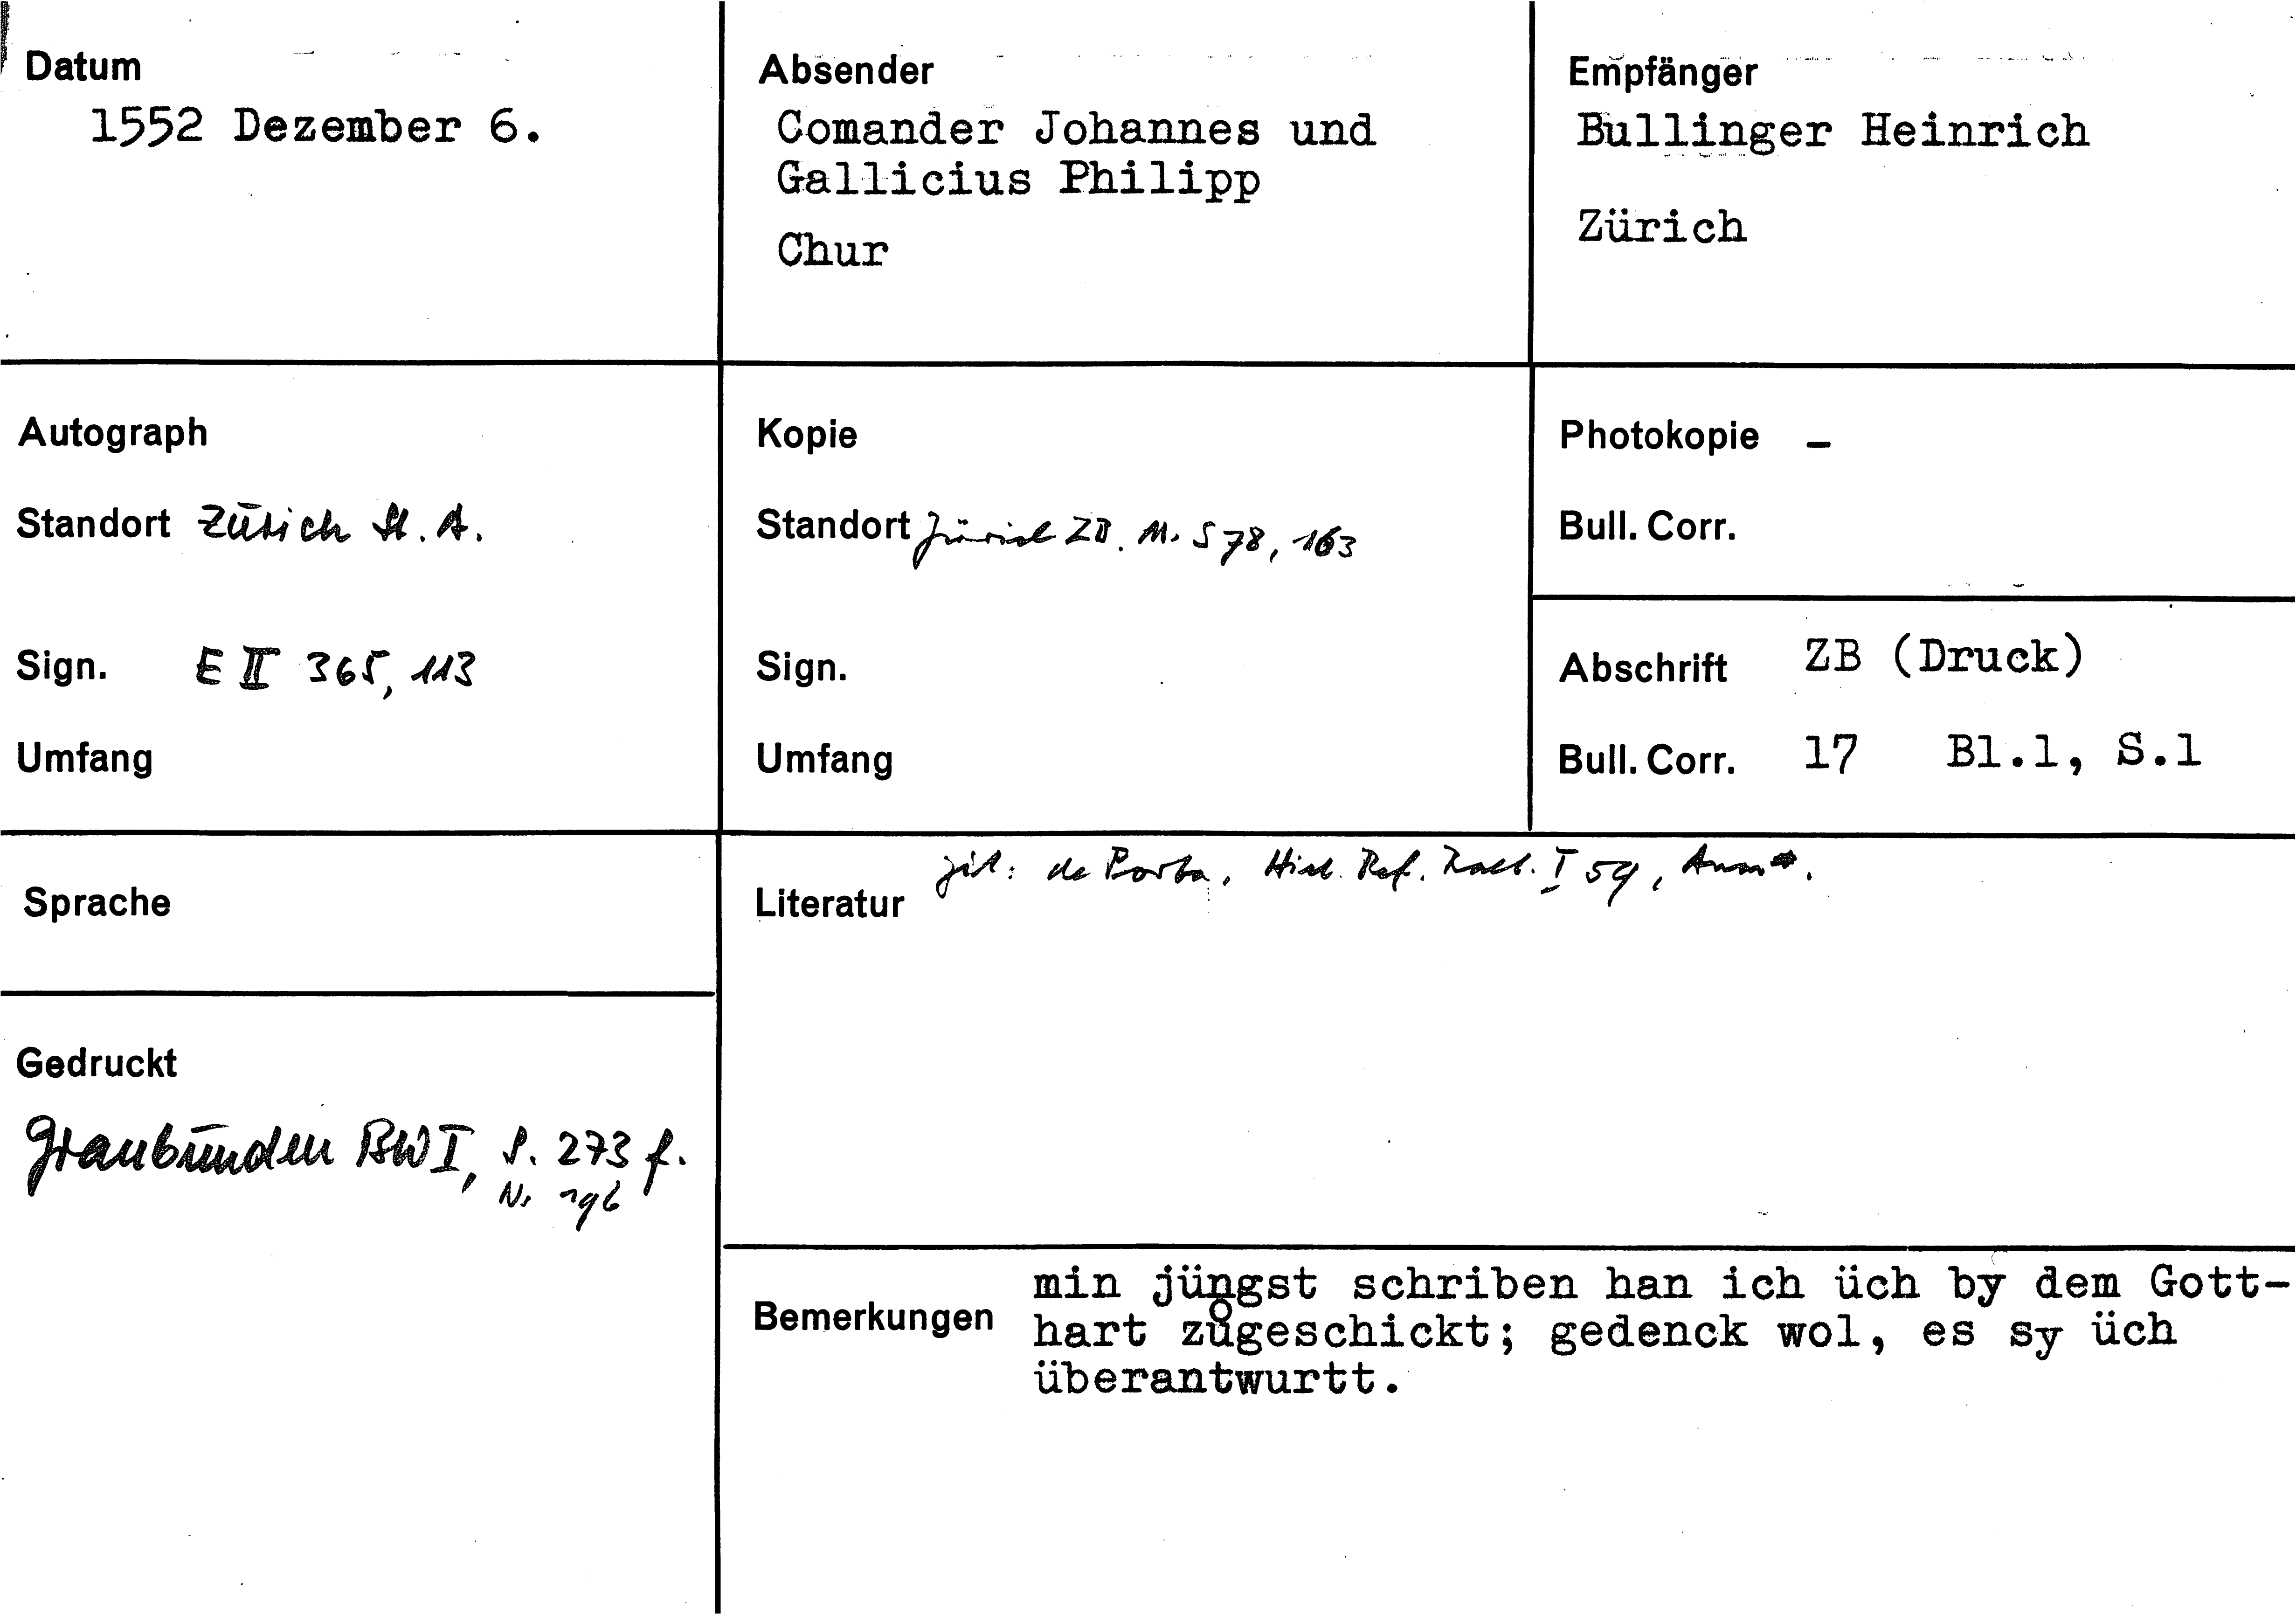 Datum
1552 Dezember 6.
Absender
Comander Johannes und
Gallicius Philipp
Chur
Empfänger
Bullinger Heinrich
Zürich
Autograph
Standort Zürich St. A.
Sign. E II 365, 113
Umfang
Kopie
Standort Zürich ZB. Ms S 78, 163
Sign.
Umfang
Photokopie –
Bull. Corr.
Abschrift ZB (Druck)
Bull. Corr. 17 Bl.1, S.1
Sprache
Gedruckt
Graubünden BW I, S. 273 f.
Nr 196
Literatur zit: de Porta, Hist. Ref. I 59, Anm
Bemerkungen min jüngst schriben han ich üch by dem Gott-
hart zůgeschickt; gedenck wol, es sy üch
überantwurtt.